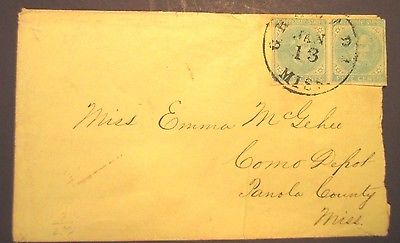 JAN
13
MISS.
Miss Emma McGehee
Como Depot
Panola County
Miss.